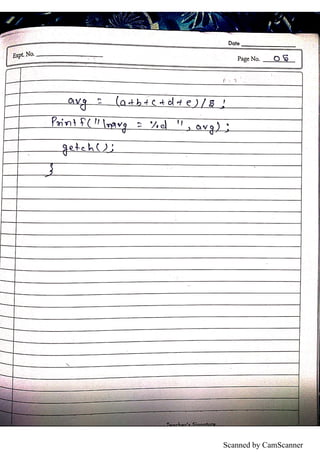 Date
Expt. No.
Page No. 05
avg = (a+b+c+d+e)/5;
Printf("\navg = %d ", avg);
getch();
}
Teacher's Signature
Scanned by CamScanner